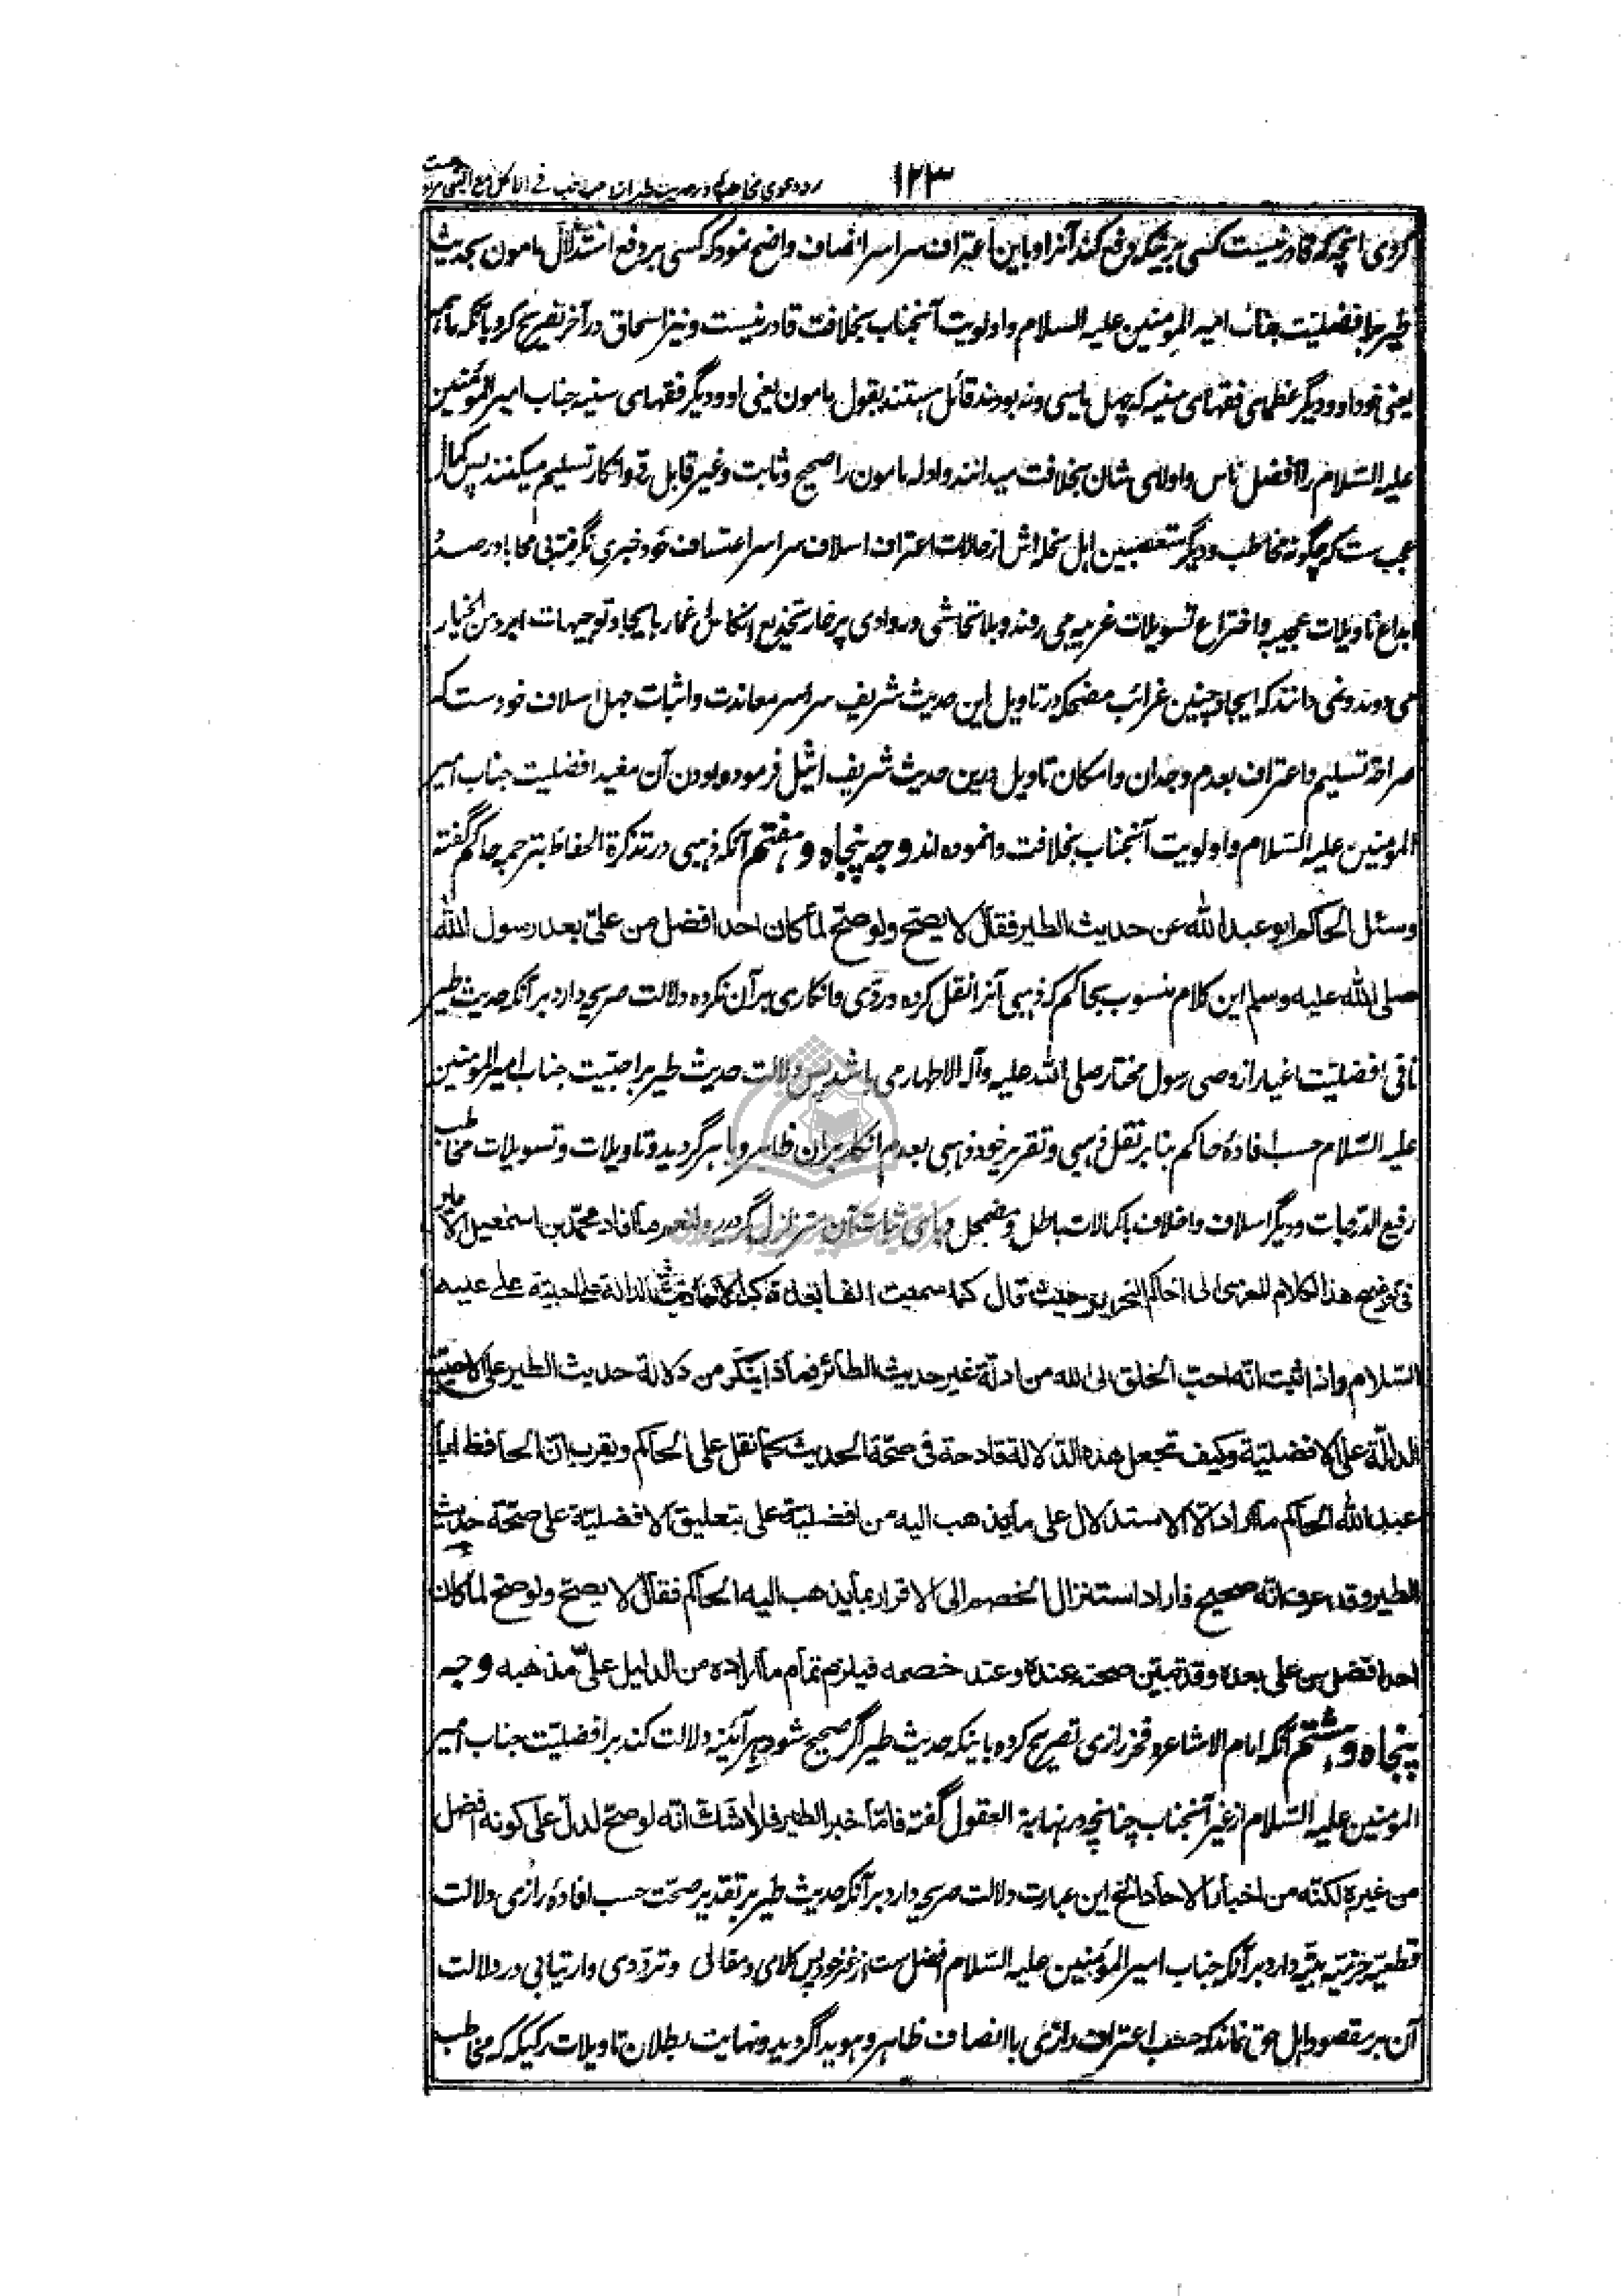 ۱۲۳
کردی انچه که قادر نیست کسی بر اینکه دفع کند آنرا و باین اعتراف سراسر انصاف واضح نمود که کسی بر دفع استدلال مامون بحدیث
طیر بر افضلیت جناب امیر المؤمنین علیه السلام و اولویت آنجناب بخلافت قادر نیست و نیز اسحاق در آخر تصریح کرد بآنکه ما همه
یعنی خود او و دیگر عظمای فقهای سنیه که چهل یا سی و نه بودند قائل هستند بقول مامون یعنی او و دیگر فقهای سنیه جناب امیر المؤمنین
علیه السلام را افضل ناس و اولای شان بخلافت میدانند و ادله مامون را صحیح و ثابت و غیر قابل رد و انکار تسلیم میکنند پس کمال
عجب ست که چگونه مخاطب و دیگر متعصبین اهل نحله اش از حالات اعتراف اسلاف سراسر اعتساف خود خبری نگرفته بی محابا در صدد
ابداع تاویلات عجیبه و اختراع تسویلات غریبه می روند و بلا تحاشی در وادی پر خار تخدیع اغمار بایجاد توجیهات ابرد من الخیار
می دوند و نمی دانند که ایجاد چنین غرائب مضحکه در تاویل این حدیث شریف سراسر معاندت و اثبات جهل اسلاف خودست که
صراحة تسلیم و اعتراف بعدم وجدان و امکان تاویل درین حدیث شریف اثیل فرموده بودن آن مفید افضلیت جناب امیر
المؤمنین علیه السلام و اولویت آنجناب بخلافت وانموده اند وجه پنجاه و هفتم آنکه ذهبی در تذکرة الحفاظ بترجمه حاکم گفته
وسئل الحاکم ابو عبد الله عن حدیث الطیر فقال لا یصح ولو صح لما کان احد افضل من علی بعد رسول الله
صلی الله علیه وسلم این کلام منسوب بحاکم که ذهبی آنرا نقل کرده و ردی و انکاری بر آن نکرده دلالت صریحه دارد بر آنکه حدیث طیر
نافی افضلیت اغیار از وصی رسول مختار صلی الله علیه وآله الاطهار می باشد پس دلالت حدیث طیر بر احبیت جناب امیر المؤمنین
علیه السلام حسب افادهٔ حاکم بنا بر نقل ذهبی و تقریر خود ذهبی بعدم انکار بر آن ظاهر و باهر گردید و تاویلات و تسویلات مخاطب
رفیع الدرجات و دیگر اسلاف و اخلاف باکمالات باطل و مضمحل و پای ثبات آن متزلزل گردید ولنعم ما افاد محمد بن اسمعیل الامیر
فی توضیح هذا الکلام المعزی الی الحاکم النحریر حیث قال کما سمعت الاحادیث الدالة علی احبیة علی علیه
السلام واذا ثبت انه احب الخلق الی الله من ادلة غیر حدیث الطائر فماذا ینکر من دلالة حدیث الطیر علی الاحبیة
الدالة علی الافضلیة وکیف تجعل هذه الدلالة قادحة فی صحة الحدیث کما نقل علی الحاکم ویقرب ان الحافظ ابا
عبد الله الحاکم ما اراد الا الاستدلال علی ما یذهب الیه من افضلیة علی بتعلیق الافضلیة علی صحة حدیث
الطیر وقد عرف انه صحیح فاراد استنزال الخصم الی الاقرار بما یذهب الیه الحاکم فقال لا یصح ولو صح لما کان
احد افضل من علی بعده وقد تبین صحته عنده وعند خصمه فیلزم تمام ما اراده من الدلیل علی مذهبه وجه
پنجاه و هشتم آنکه امام الاشاعره فخر رازی تصریح کرده باینکه حدیث طیر اگر صحیح شود هر آئینه دلالت کند بر افضلیت جناب امیر
المؤمنین علیه السلام از غیر آنجناب چنانچه در نهایة العقول گفته فاما خبر الطیر فلا شک انه لو صح لدل علی کونه افضل
من غیره لکنه من اخبار الاحاد الخ این عبارت دلالت صریحه دارد بر آنکه حدیث طیر بر تقدیر صحت حسب افادهٔ رازی دلالت
قطعیه جزمیه بتیه دارد بر آنکه جناب امیر المؤمنین علیه السلام افضل ست از غیر خود پس کلامی و مقالی و ترددی و ارتیابی در دلالت
آن بر مقصود اهل حق نماند که حسب اعتراف رازی با انصاف ظاهر و هویدا گردید و نهایت بطلان تاویلات رکیکه که مخاطب